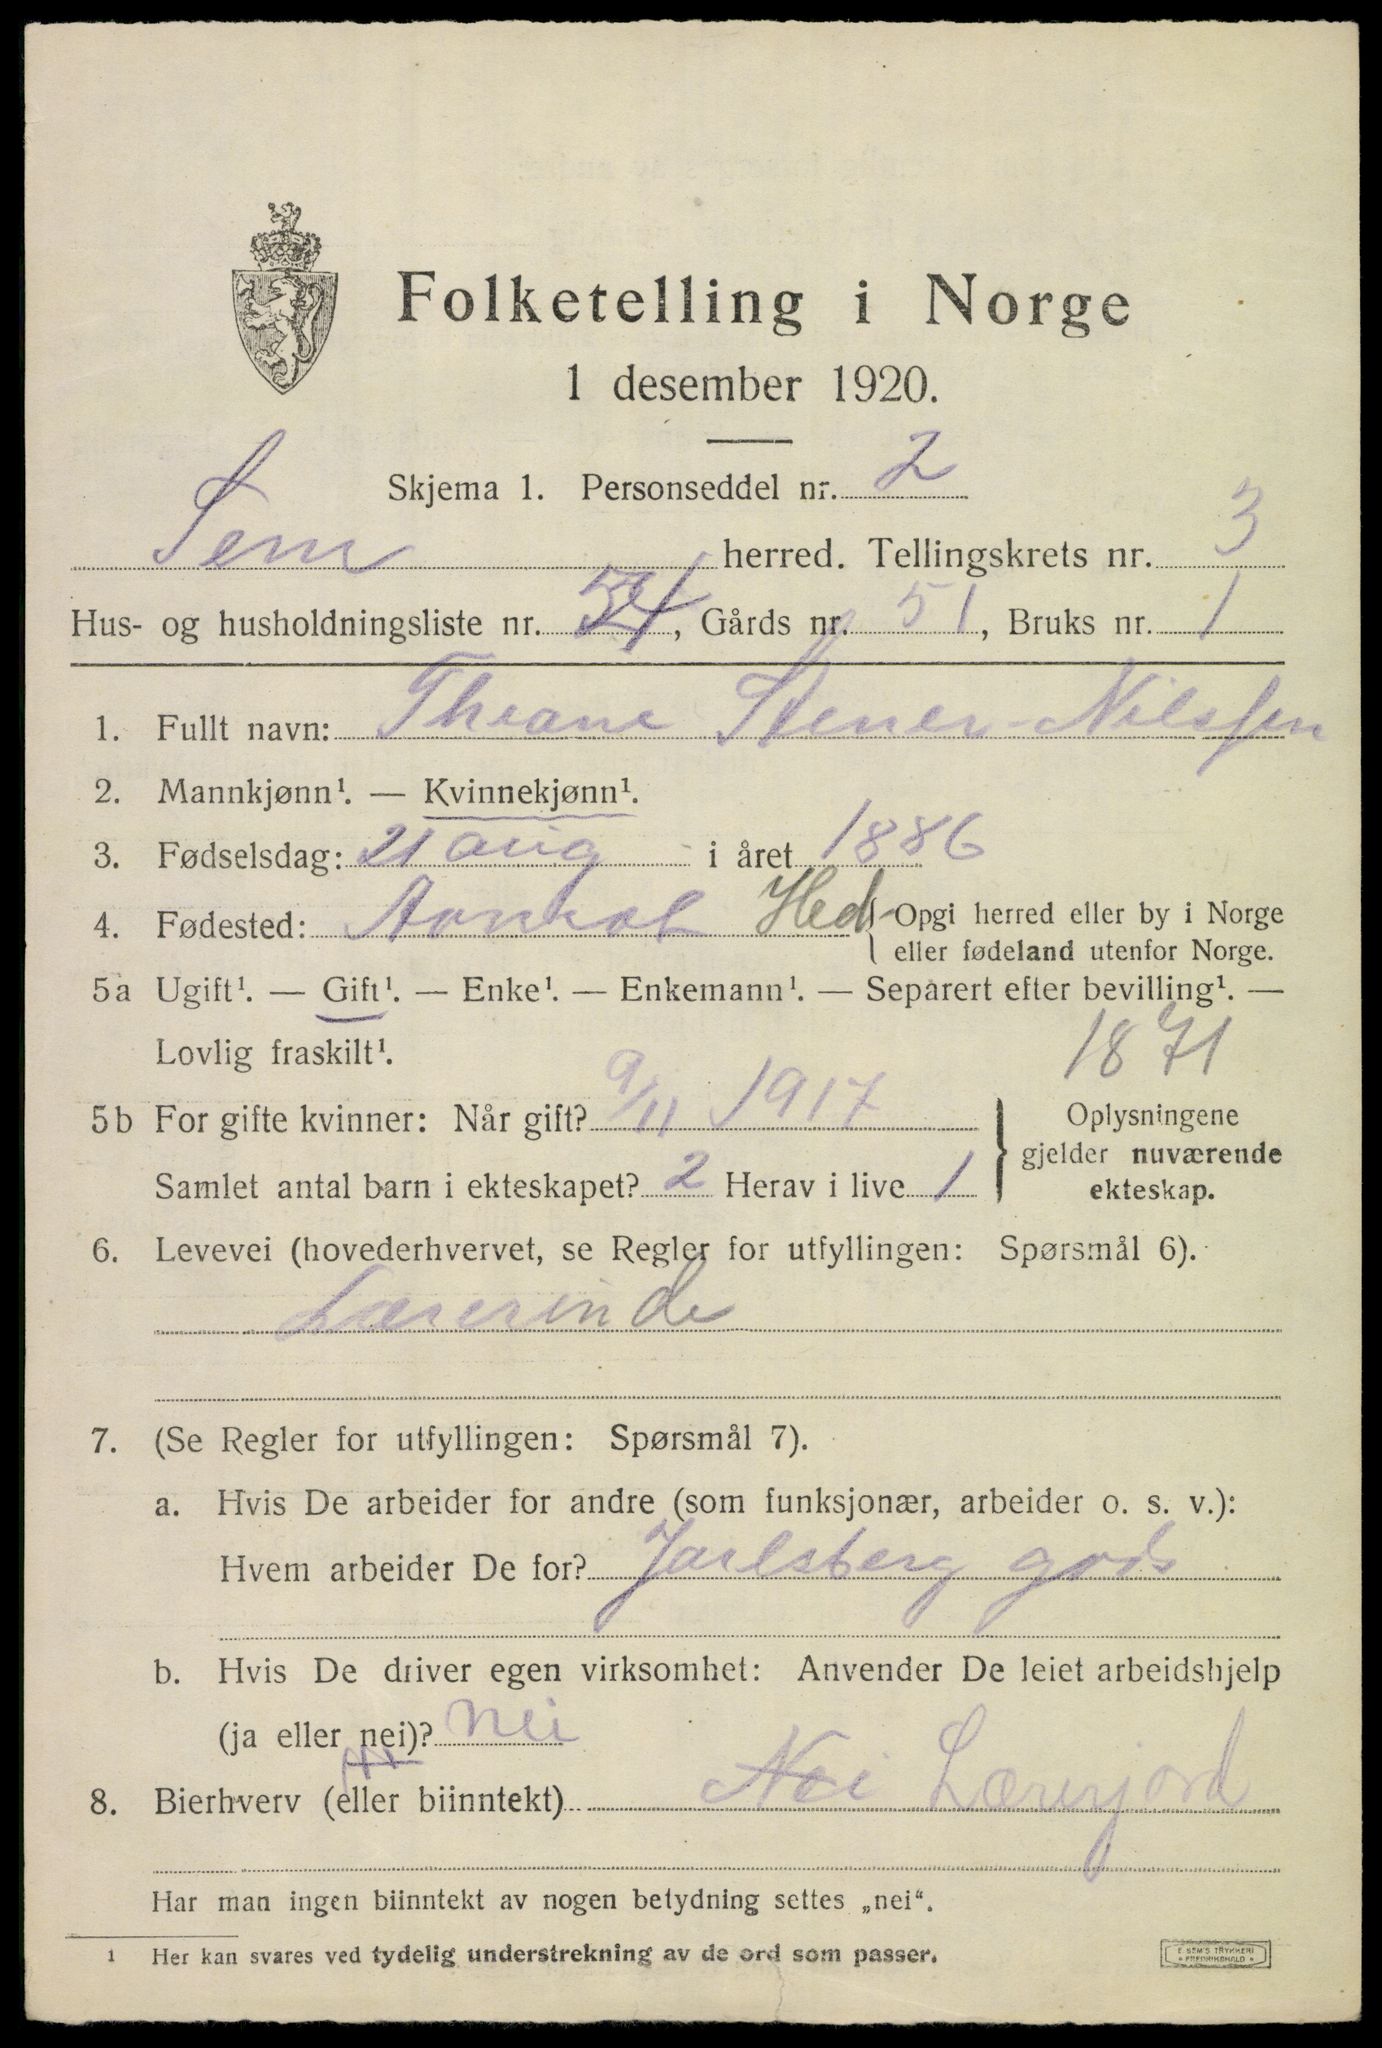 Folketelling i Norge
1 desember 1920.
Skjema 1. Personseddel nr. 2
Sem herred. Tellingskrets nr. 3
Hus- og husholdningsliste nr. 54, Gårds nr. 51, Bruks nr. 1
1. Fullt navn: Theane Stener-Nilssen
2. Mannkjønn¹. — Kvinnekjønn¹.
3. Fødselsdag: 21 aug i året 1886
4. Fødested: Hed Opgi herred eller by i Norge
eller fødeland utenfor Norge.
5a Ugift¹. — Gift¹. — Enke¹. — Enkemann¹. — Separert efter bevilling¹. —
Lovlig fraskilt¹. 1871
5b For gifte kvinner: Når gift? 9/11 1917 Oplysningene
gjelder nuværende
Samlet antal barn i ekteskapet? 2 Herav i live 1 ekteskap.
6. Levevei (hovederhvervet, se Regler for utfyllingen: Spørsmål 6).
Lærerinde
7. (Se Regler for utfyllingen: Spørsmål 7).
a. Hvis De arbeider for andre (som funksjonær, arbeider o. s. v.):
Hvem arbeider De for? Jarlsberg gods
b. Hvis De driver egen virksomhet: Anvender De leiet arbeidshjelp
(ja eller nei)? nei
8. Bierhverv (eller biinntekt) Nei Lærerjord
Har man ingen biinntekt av nogen betydning settes „nei“.
1 Her kan svares ved tydelig understrekning av de ord som passer.
E. SEM'S TRYKKERI
FREDRIKSHALD